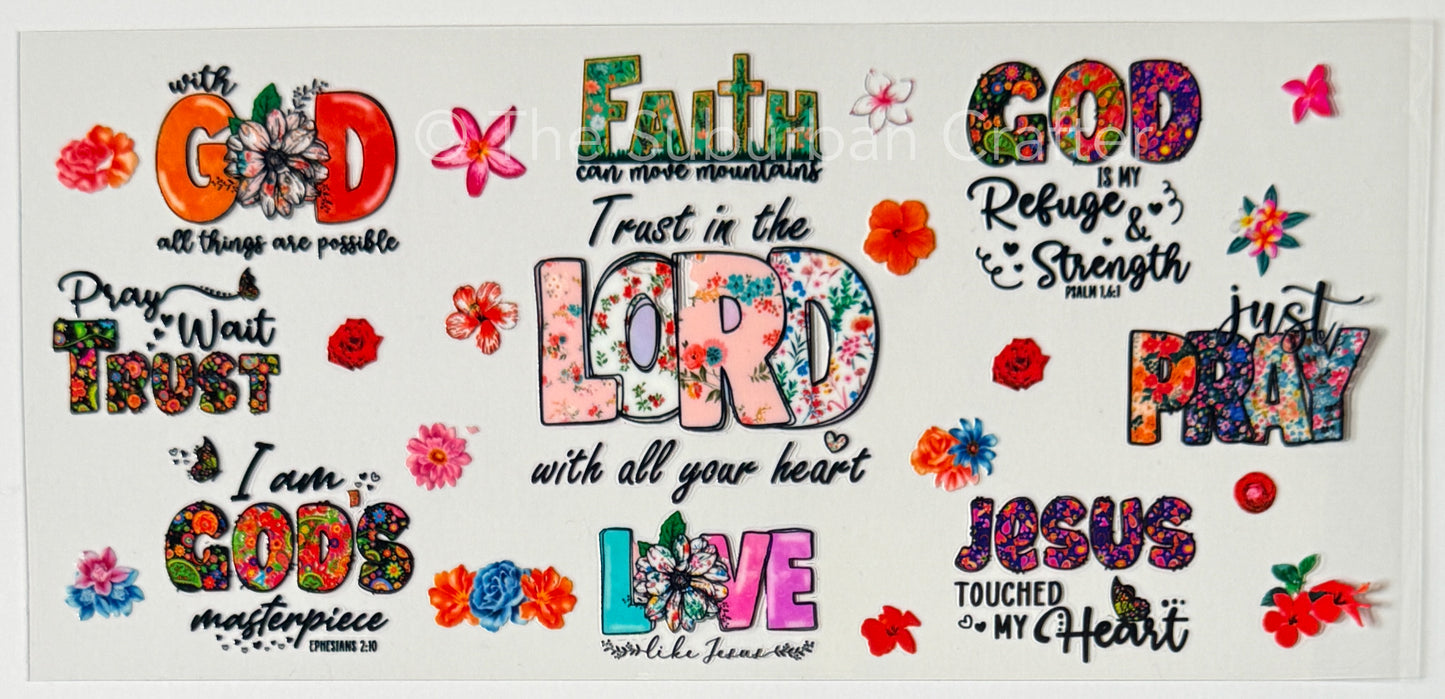 with
GOD
all things are possible
FAITH
can move mountains
GOD
IS MY
Refuge
&
Strength
PSALM 1,6:1
© The Suburban Crafter
Pray
Wait
TRUST
Trust in the
LORD
with all your heart
just
PRAY
I am
GOD'S
masterpiece
EPHESIANS 2:10
LOVE
like Jesus
JESUS
TOUCHED
MY Heart